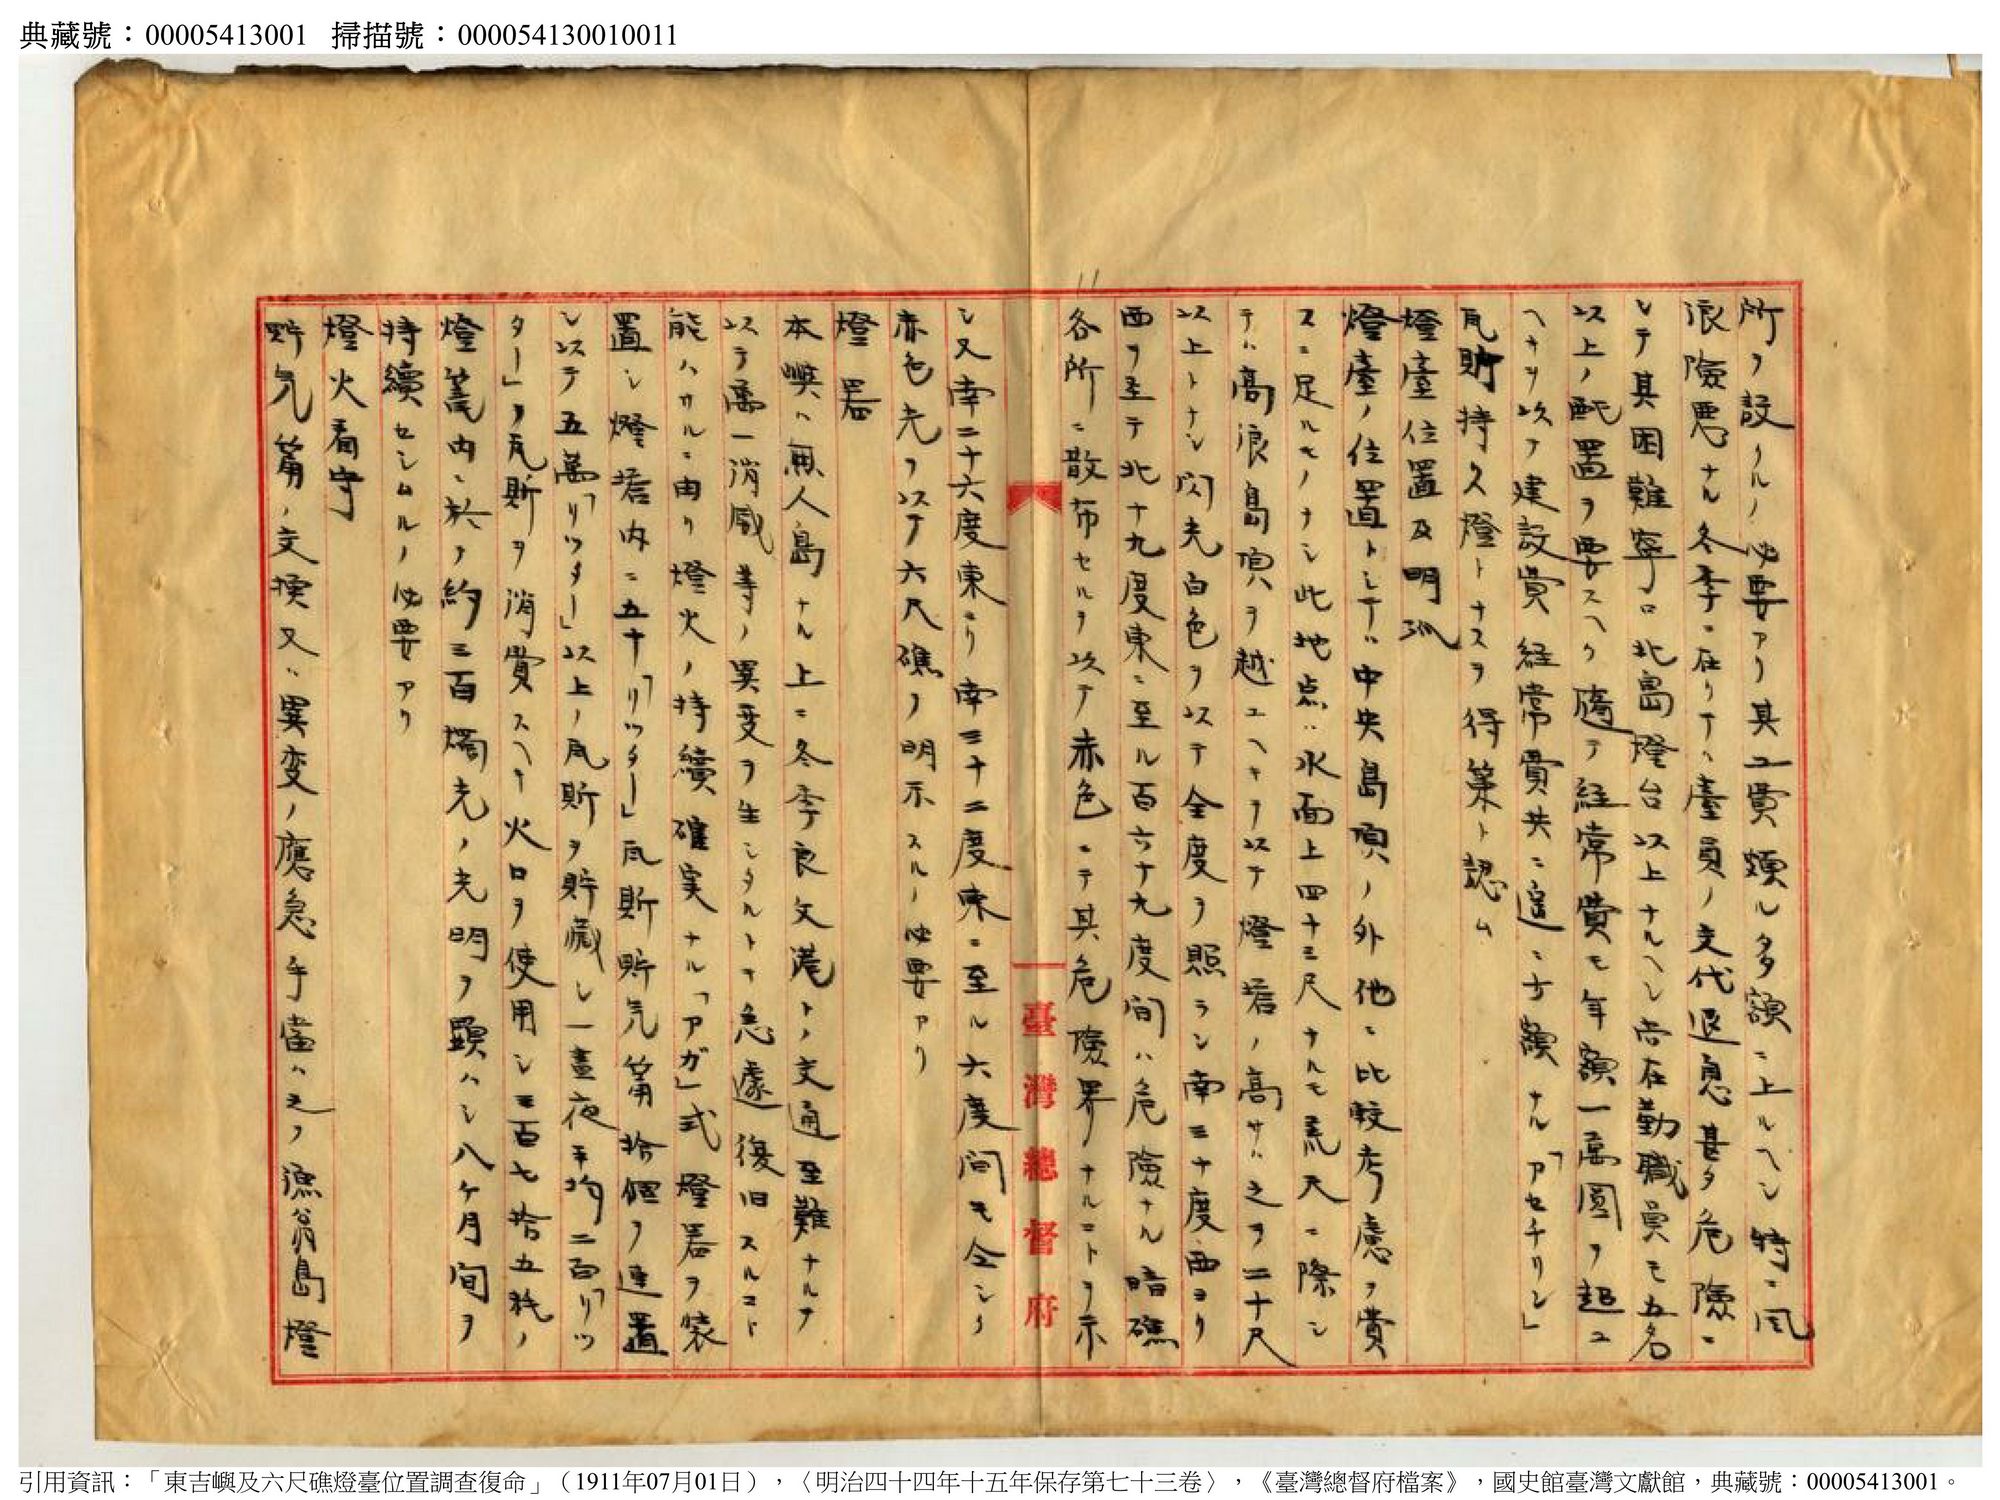 典藏號：00005413001 掃描號：000054130010011
所ヲ設クルノ必要アリ其工費頗ル多額ニ上ルヘシ特ニ風
浪險悪ナル冬季ニ在リテハ臺員ノ交代退息甚タ危險ニ
シテ其困難寧ロ北島燈台以上ナルヘシ尚在勤職員モ五名
以上ノ配置ヲ要スヘク随テ経常費モ年額一萬圓ヲ超エ
ヘキヲ以テ建設費経常費共ニ遥ニ少額ナル「アセチリン」
瓦斯持久燈トナスヲ得策ト認ム
燈臺位置及明弧
燈臺ノ位置トシテハ中央島頂ノ外他ニ比較考慮ヲ費
スニ足ルモノナシ此地点ハ水面上四十三尺ナルモ荒天ニ際シ
テハ高浪島頂ヲ越エヘキヲ以テ燈塔ノ高サハ之ヲ二十尺
以上トナシ閃光白色ヲ以テ全度ヲ照ラシ南三十度西ヨリ
西ヲ至テ北十九度東ニ至ル百六十九度間ハ危險ナル暗礁
各所ニ散布セルヲ以テ赤色ニテ其危險界ナルコトヲ示
シ又南二十六度東ヨリ南三十二度東ニ至ル六度間モ仝シク
赤色光ヲ以テ六尺礁ヲ明示スルノ必要アリ
燈器
本嶼ハ無人島ナル上ニ冬季良文港トノ交通至難ナルヲ
以テ萬一消滅等ノ異変ヲ生シタルトキ急遽復旧スルコト
能ハサルニ由リ燈火ノ持續確実ナル「アガ」式燈器ヲ装
置シ燈塔内ニ五十「リッター」瓦斯貯気筩拾個ヲ連置
シ以テ五萬「リッター」以上ノ瓦斯ヲ貯藏シ一晝夜平均二百「リッ
ター」ノ瓦斯ヲ消費スヘキ火口ヲ使用シ三百七拾五粍ノ
燈蓋内ニ於テ約三百燭光ノ光明ヲ顕ハシ八ケ月間ヲ
持續セシムルノ必要アリ
燈火看守
貯気筩ノ交換又ハ異変ノ應急手當ハ之ヲ漁翁島燈
臺灣總督府
引用資訊：「東吉嶼及六尺礁燈臺位置調查復命」（1911年07月01日），〈明治四十四年十五年保存第七十三卷〉，《臺灣總督府檔案》，國史館臺灣文獻館，典藏號：00005413001。